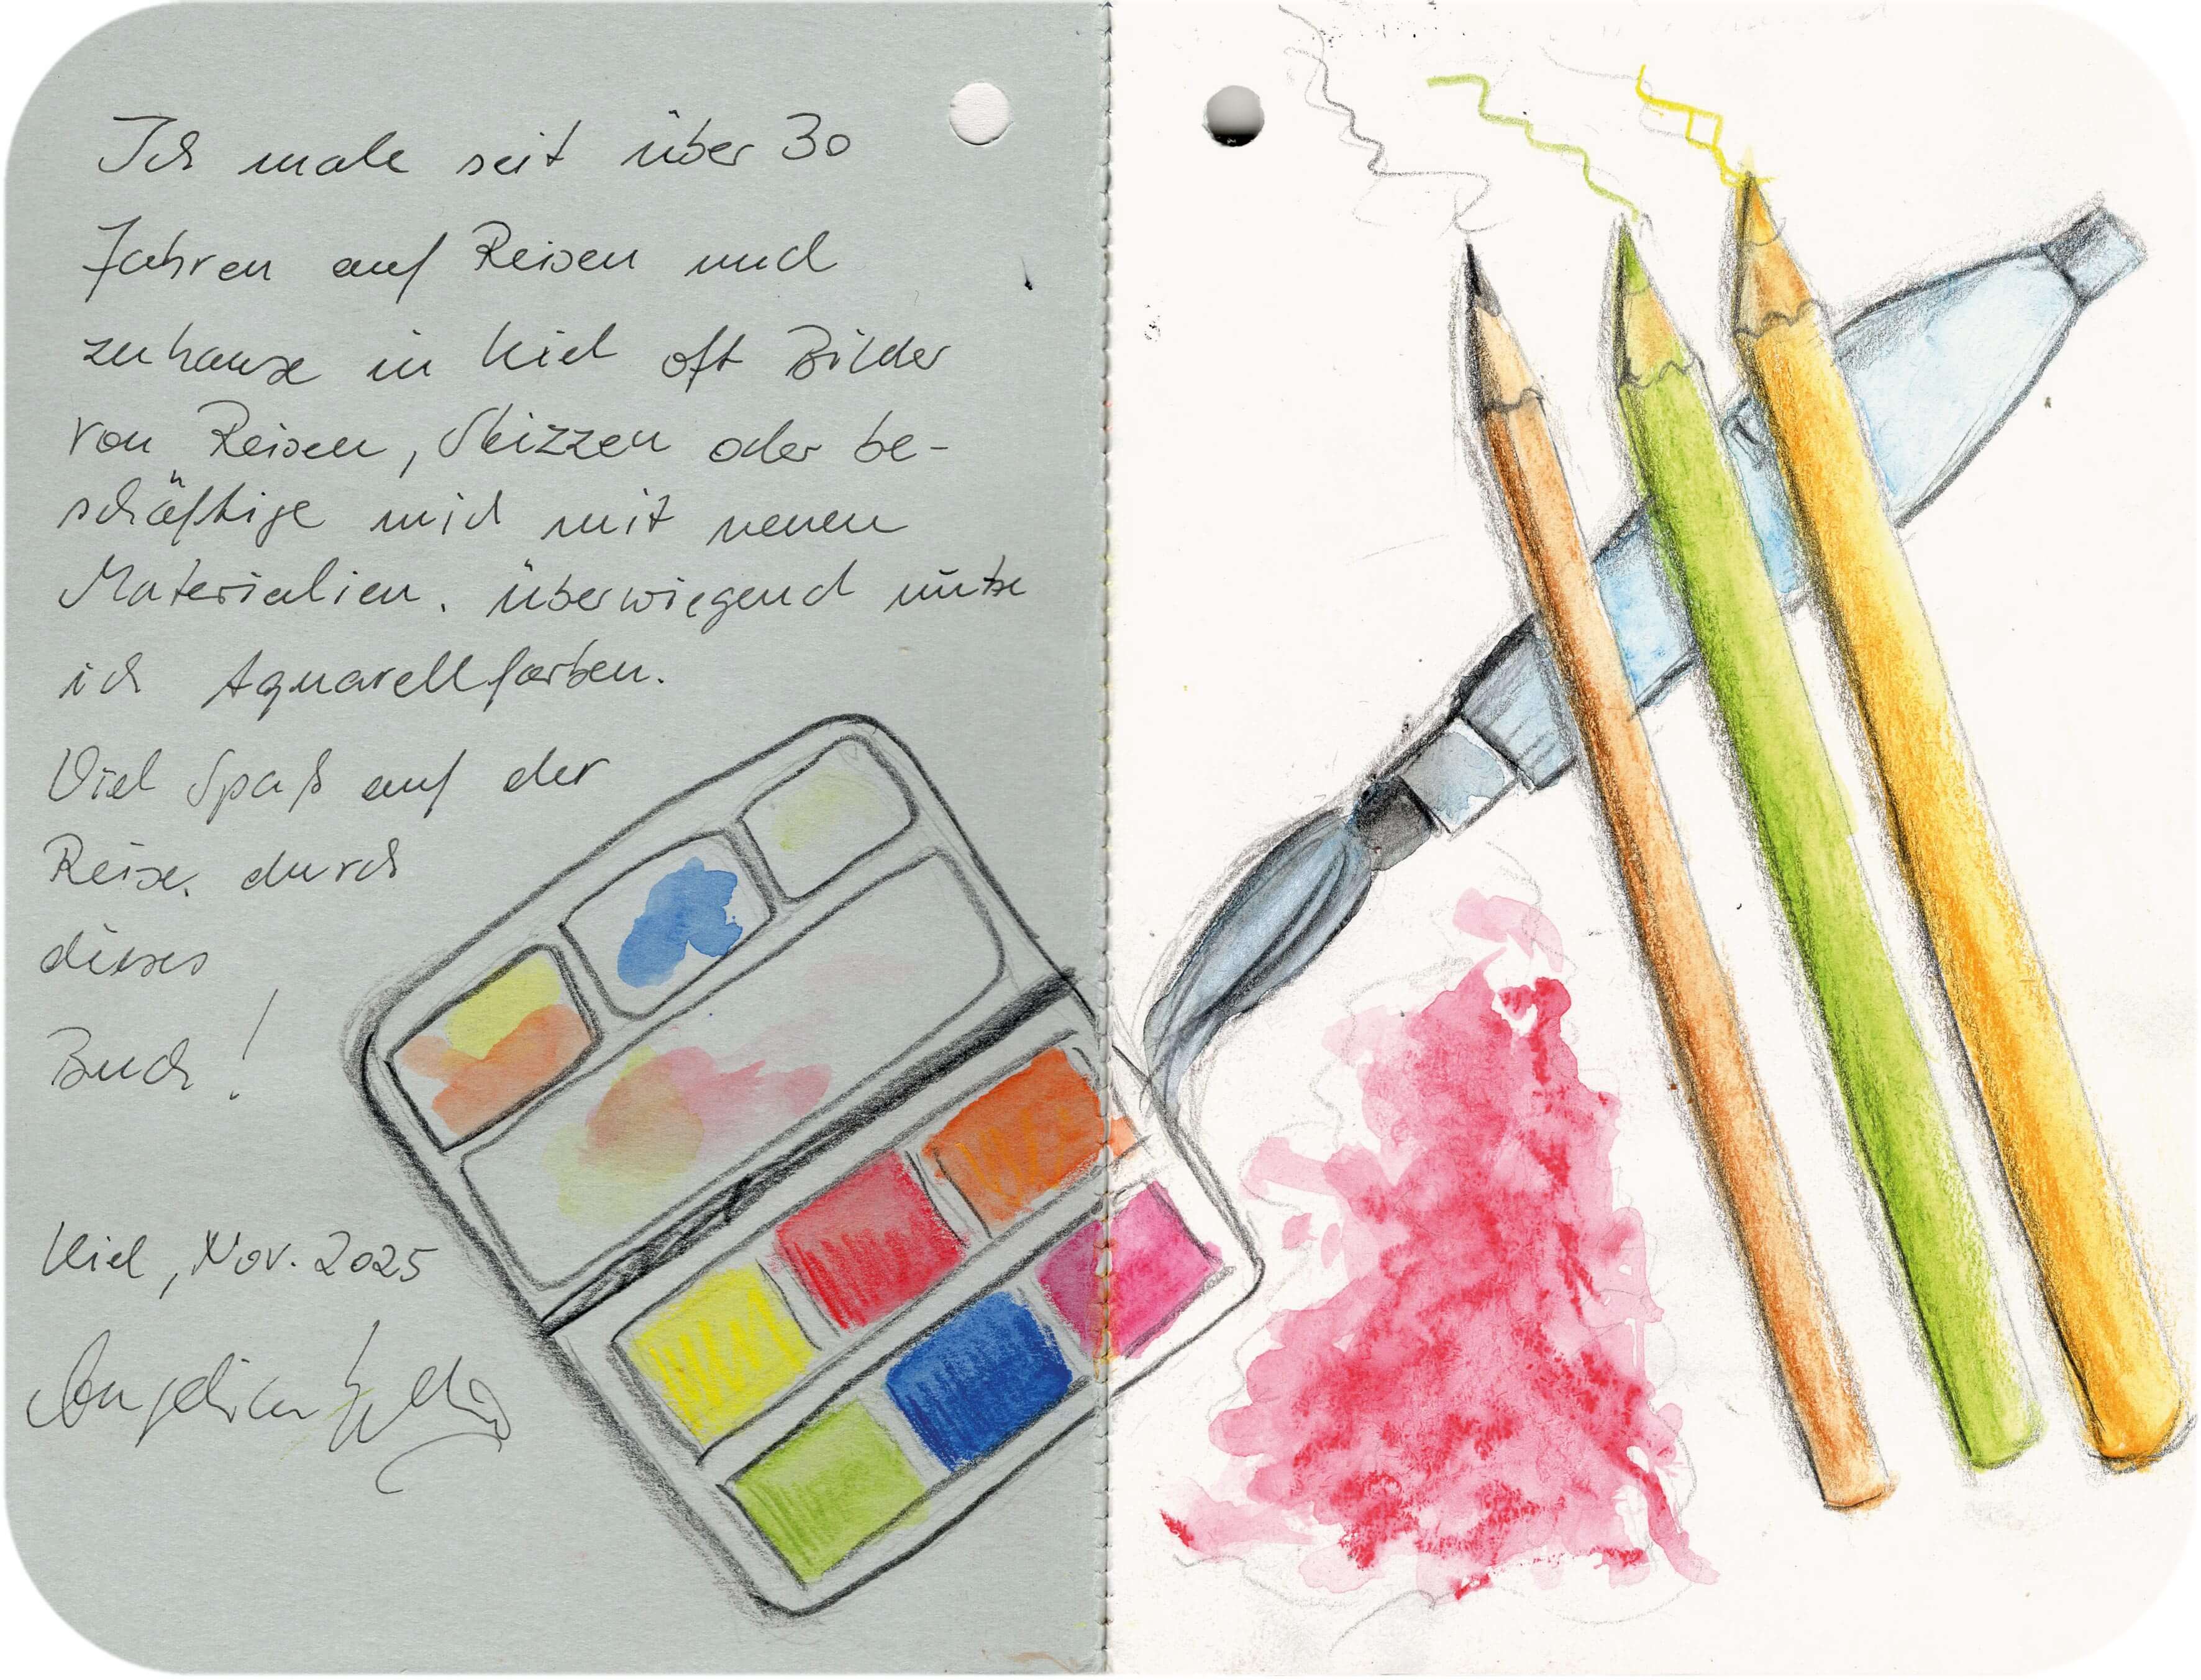 Ich male seit über 30
Jahren auf Reisen und
zuhause in Kiel oft Bilder
von Reisen, Skizzen oder be-
schäftige mich mit neuen
Materialien. überwiegend nutze
ich Aquarellfarben.
Viel Spaß auf der
Reise durch
dieses
Buch!
Kiel, Nov. 2025
Angelika